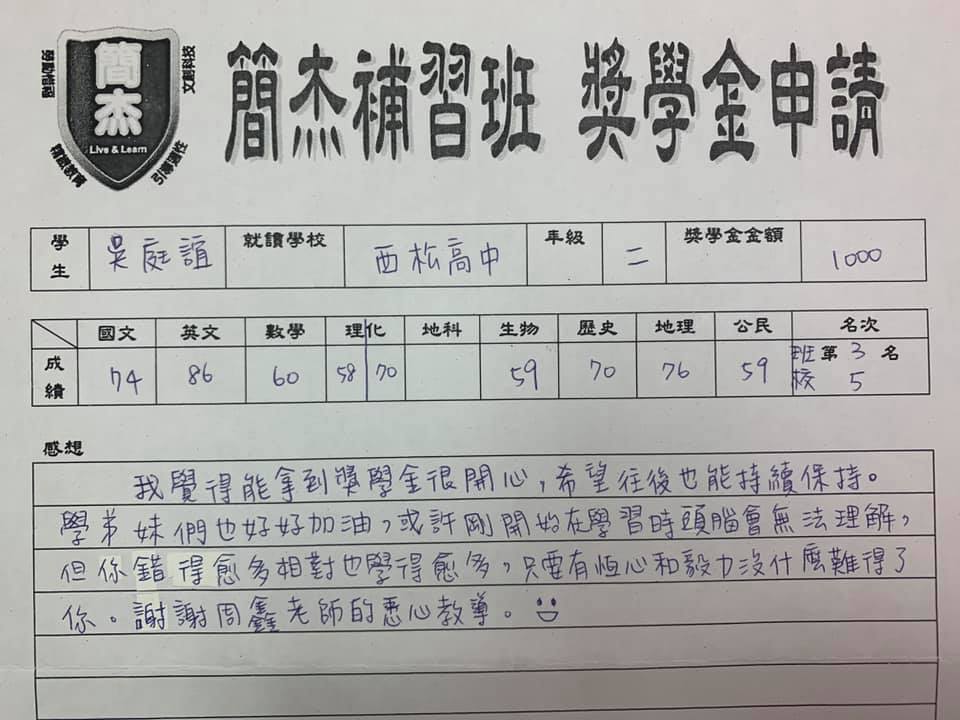 簡杰
Live & Learn
文創科技
引導適性
簡杰補習班 獎學金申請
學生 吳庭誼 就讀學校 西松高中 年級 二 獎學金金額 1000
國文 英文 數學 理化 地科 生物 歷史 地理 公民 名次
成績 74 86 60 58 70 59 70 76 59 班第3名
校 5
感想
我覺得能拿到獎學金很開心,希望往後也能持續保持。
學弟妹們也好好加油,或許剛開始在學習時頭腦會無法理解,
但你錯得愈多相對也學得愈多,只要有恆心和毅力沒什麼難得了
你。謝謝周鑫老師的悉心教導。